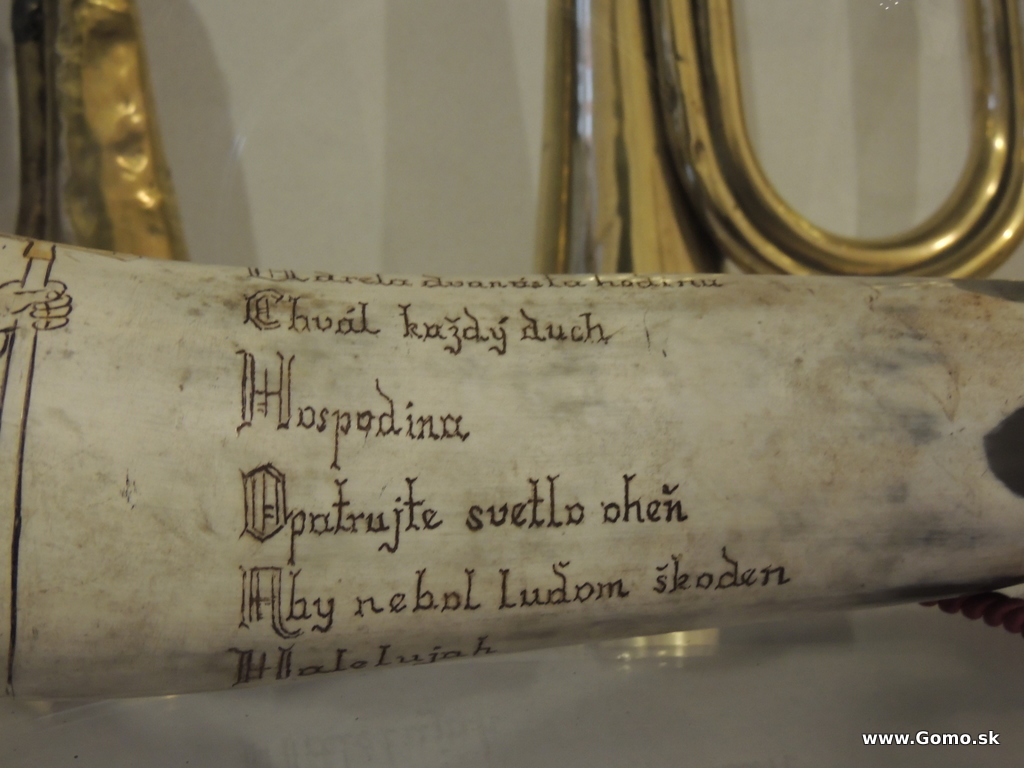 dvanásta hodinu
Chvál každý duch
Hospodina
Opatrujte svetlo oheň
Aby nebol luďom škoden
Halelujah
www.Gomo.sk